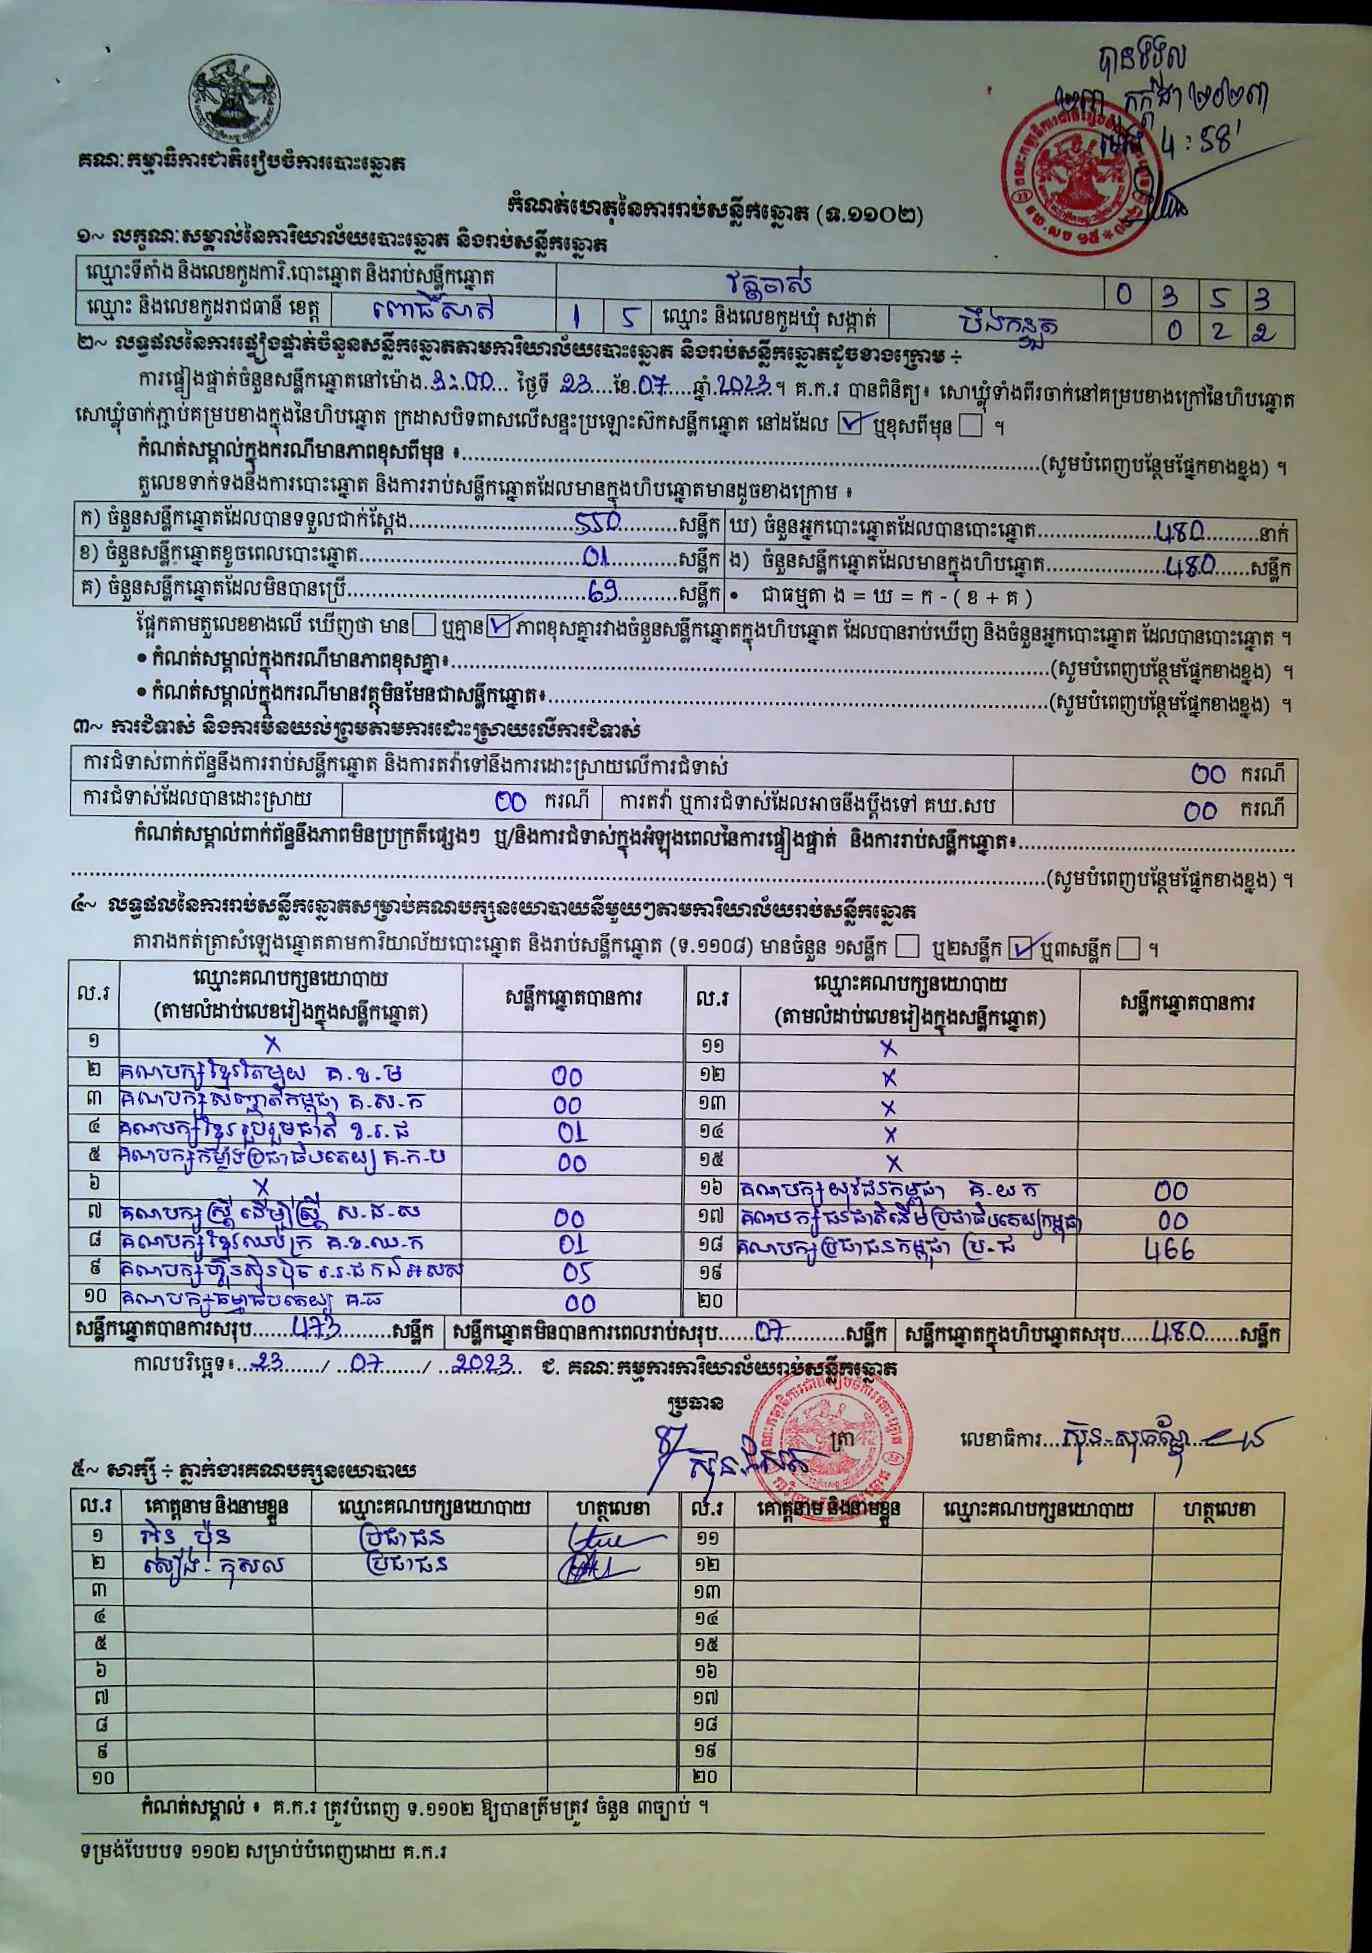 បានទទួល
២៣ កក្កដា ២០២៣
ម៉ោង 4:58'
គណៈកម្មាធិការជាតិរៀបចំការបោះឆ្នោត
កំណត់ហេតុនៃការរាប់សន្លឹកឆ្នោត (ទ.១១០២)
១~ លក្ខណៈសម្គាល់នៃការិយាល័យបោះឆ្នោត និងរាប់សន្លឹកឆ្នោត
ឈ្មោះទីតាំង និងលេខកូដការិ.បោះឆ្នោត និងរាប់សន្លឹកឆ្នោត វត្តចាស់ 0 3 5 3
ឈ្មោះ និងលេខកូដរាជធានី ខេត្ត ពោធិ៍សាត់ 1 5 ឈ្មោះ និងលេខកូដឃុំ សង្កាត់ បឹងកន្ទួត 0 2 2
២~ លទ្ធផលនៃការផ្ទៀងផ្ទាត់ចំនួនសន្លឹកឆ្នោតតាមការិយាល័យបោះឆ្នោត និងរាប់សន្លឹកឆ្នោតដូចខាងក្រោម ÷
ការផ្ទៀងផ្ទាត់ចំនួនសន្លឹកឆ្នោតនៅម៉ោង.3:00... ថ្ងៃទី 23....ខែ.07.....ឆ្នាំ.2023.។ គ.ក.រ បានពិនិត្យ៖ សោឃ្លុំទាំងពីរចាក់នៅគម្របខាងក្រៅនៃហិបឆ្នោត
សោឃ្លុំចាក់ភ្ជាប់គម្របខាងក្នុងនៃហិបឆ្នោត ក្រដាសបិទពាសលើសន្ទះប្រឡោះស៊កសន្លឹកឆ្នោត នៅដដែល ☑ ឬខុសពីមុន ☐ ។
កំណត់សម្គាល់ក្នុងករណីមានភាពខុសពីមុន ៖..........(សូមបំពេញបន្ថែមផ្នែកខាងខ្នង) ។
តួលេខទាក់ទងនឹងការបោះឆ្នោត និងការរាប់សន្លឹកឆ្នោតដែលមានក្នុងហិបឆ្នោតមានដូចខាងក្រោម ៖
ក) ចំនួនសន្លឹកឆ្នោតដែលបានទទួលជាក់ស្តែង..........550..........សន្លឹក ឃ) ចំនួនអ្នកបោះឆ្នោតដែលបានបោះឆ្នោត..........480..........នាក់
ខ) ចំនួនសន្លឹកឆ្នោតខូចពេលបោះឆ្នោត..........01..........សន្លឹក ង) ចំនួនសន្លឹកឆ្នោតដែលមានក្នុងហិបឆ្នោត..........480......សន្លឹក
គ) ចំនួនសន្លឹកឆ្នោតដែលមិនបានប្រើ..........69..........សន្លឹក • ជាធម្មតា ង = ឃ = ក - ( ខ + គ )
ផ្អែកតាមតួលេខខាងលើ ឃើញថា មាន☐ ឬគ្មាន☑ ភាពខុសគ្នារវាងចំនួនសន្លឹកឆ្នោតក្នុងហិបឆ្នោត ដែលបានរាប់ឃើញ និងចំនួនអ្នកបោះឆ្នោត ដែលបានបោះឆ្នោត ។
• កំណត់សម្គាល់ក្នុងករណីមានភាពខុសគ្នា៖..........(សូមបំពេញបន្ថែមផ្នែកខាងខ្នង) ។
• កំណត់សម្គាល់ក្នុងករណីមានវត្ថុមិនមែនជាសន្លឹកឆ្នោត៖..........(សូមបំពេញបន្ថែមផ្នែកខាងខ្នង) ។
៣~ ការជំទាស់ និងការមិនយល់ព្រមតាមការដោះស្រាយលើការជំទាស់
ការជំទាស់ពាក់ព័ន្ធនឹងការរាប់សន្លឹកឆ្នោត និងការតវ៉ាទៅនឹងការដោះស្រាយលើការជំទាស់ 00 ករណី
ការជំទាស់ដែលបានដោះស្រាយ 00 ករណី ការតវ៉ា ឬការជំទាស់ដែលអាចនឹងប្តឹងទៅ គឃ.សប 00 ករណី
កំណត់សម្គាល់ពាក់ព័ន្ធនឹងភាពមិនប្រក្រតីផ្សេងៗ ឬ/និងការជំទាស់ក្នុងអំឡុងពេលនៃការផ្ទៀងផ្ទាត់ និងការរាប់សន្លឹកឆ្នោត៖..........
..........(សូមបំពេញបន្ថែមផ្នែកខាងខ្នង) ។
៤~ លទ្ធផលនៃការរាប់សន្លឹកឆ្នោតសម្រាប់គណបក្សនយោបាយនីមួយៗតាមការិយាល័យរាប់សន្លឹកឆ្នោត
តារាងកត់ត្រាសំឡេងឆ្នោតតាមការិយាល័យបោះឆ្នោត និងរាប់សន្លឹកឆ្នោត (ទ.១១០៨) មានចំនួន ១សន្លឹក ☐ ឬ២សន្លឹក ☑ ឬ៣សន្លឹក ☐ ។
ល.រ ឈ្មោះគណបក្សនយោបាយ សន្លឹកឆ្នោតបានការ ល.រ ឈ្មោះគណបក្សនយោបាយ សន្លឹកឆ្នោតបានការ
(តាមលំដាប់លេខរៀងក្នុងសន្លឹកឆ្នោត) (តាមលំដាប់លេខរៀងក្នុងសន្លឹកឆ្នោត)
១ X ១១ X
២ គណបក្សខ្មែរតែមួយ គ.ខ.ម 00 ១២ X
៣ គណបក្សសញ្ជាតិកម្ពុជា គ.ស.ក 00 ១៣ X
៤ គណបក្សខ្មែររួបរួមជាតិ ខ.រ.ជ 01 ១៤ X
៥ គណបក្សកម្លាំងប្រជាធិបតេយ្យ គ.ក.ប 00 ១៥ X
៦ X ១៦ គណបក្សយុវជនកម្ពុជា គ.យ.ក 00
៧ គណបក្សស្ត្រីដើម្បីស្ត្រី ស.ដ.ស 00 ១៧ គណបក្សជនជាតិដើមប្រជាធិបតេយ្យកម្ពុជា 00
៨ គណបក្សខ្មែរឈប់ក្រ គ.ខ.ឈ.ក 01 ១៨ គណបក្សប្រជាជនកម្ពុជា ប្រ.ជ 466
៩ គណបក្សហ្វ៊ុនស៊ិនប៉ិច 05 ១៩
១០ គណបក្សធម្មាធិបតេយ្យ គ.ធ 00 ២០
សន្លឹកឆ្នោតបានការសរុប......473..........សន្លឹក សន្លឹកឆ្នោតមិនបានការពេលរាប់សរុប......07..........សន្លឹក សន្លឹកឆ្នោតក្នុងហិបឆ្នោតសរុប.....480......សន្លឹក
កាលបរិច្ឆេទ៖..23....../ ..07....../ ..2023.. ជ. គណៈកម្មការការិយាល័យរាប់សន្លឹកឆ្នោត
ប្រធាន
ត្រា
លេខាធិការ...
៥~ សាក្សី ÷ ភ្នាក់ងារគណបក្សនយោបាយ
ល.រ គោត្តនាម និងនាមខ្លួន ឈ្មោះគណបក្សនយោបាយ ហត្ថលេខា ល.រ គោត្តនាម និងនាមខ្លួន ឈ្មោះគណបក្សនយោបាយ ហត្ថលេខា
១ អ៊ិន ប៉ុន ប្រជាជន ១១
២ សៀង កុសល ប្រជាជន ១២
៣ ១៣
៤ ១៤
៥ ១៥
៦ ១៦
៧ ១៧
៨ ១៨
៩ ១៩
១០ ២០
កំណត់សម្គាល់ ៖ គ.ក.រ ត្រូវបំពេញ ទ.១១០២ ឱ្យបានត្រឹមត្រូវ ចំនួន ៣ច្បាប់ ។
ទម្រង់បែបបទ ១១០២ សម្រាប់បំពេញដោយ គ.ក.រ